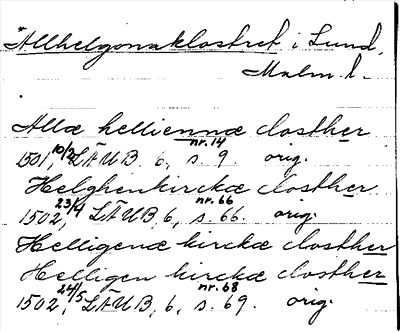 Allhelgonaklostret i Lund,
Malm. l.
Allæ helliennæ closther
1501, 10/2, LÄUB. 6, nr. 14 s. 9. orig.
Helghenkirckæ closther
1502, 23/4, LÄUB, 6, nr. 66 s. 66. orig.
Helligenæ kirckæ closther
Helligen kirckæ closther
1502, 24/5, LÄUB, 6, nr. 68 s. 69. orig.